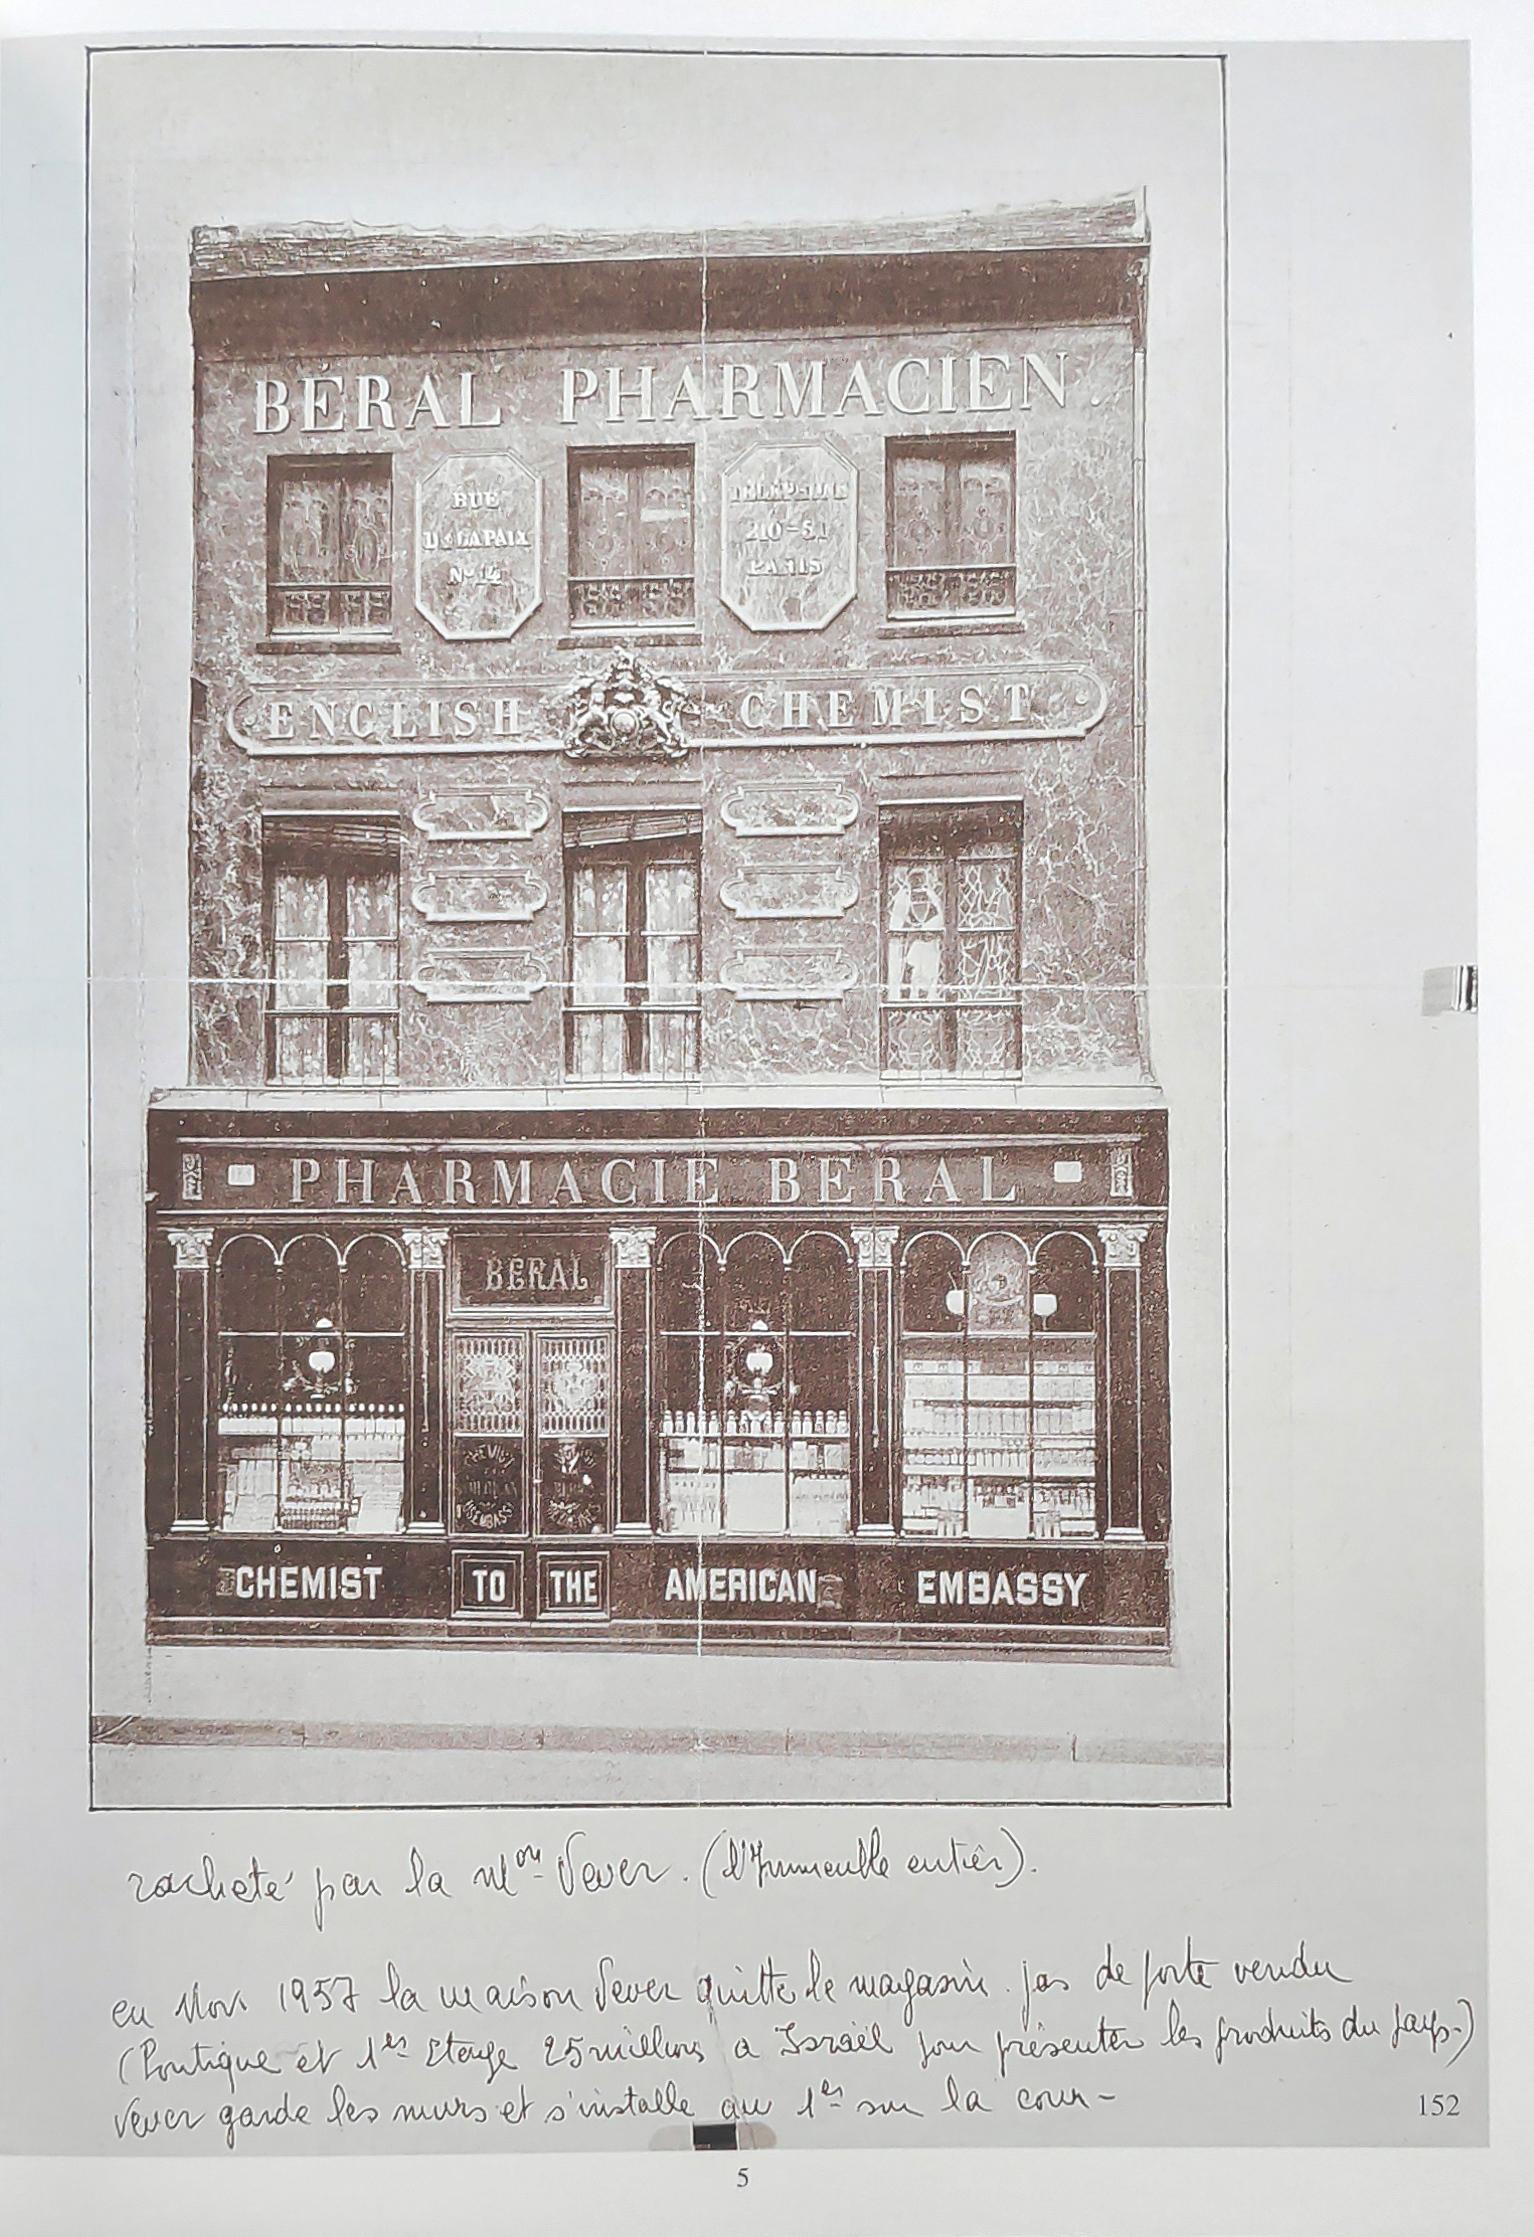 BÉRAL PHARMACIEN.
RUE
DE LA PAIX
No 14
TÉLÉPHONE
210-51
PARIS
ENGLISH CHEMIST
PHARMACIE BÉRAL
BÉRAL
CHEMIST TO THE AMERICAN EMBASSY
racheté par la Mon Vever. (l'Immeuble entier).
en Nov. 1957 la maison Vever quitte le magasin. pas de porte vendu
(Boutique et 1er Etage 25 millions a Israël pour présenter les produits du pays.)
Vever garde les murs et s'installe au 1er sur la cour -
152
5